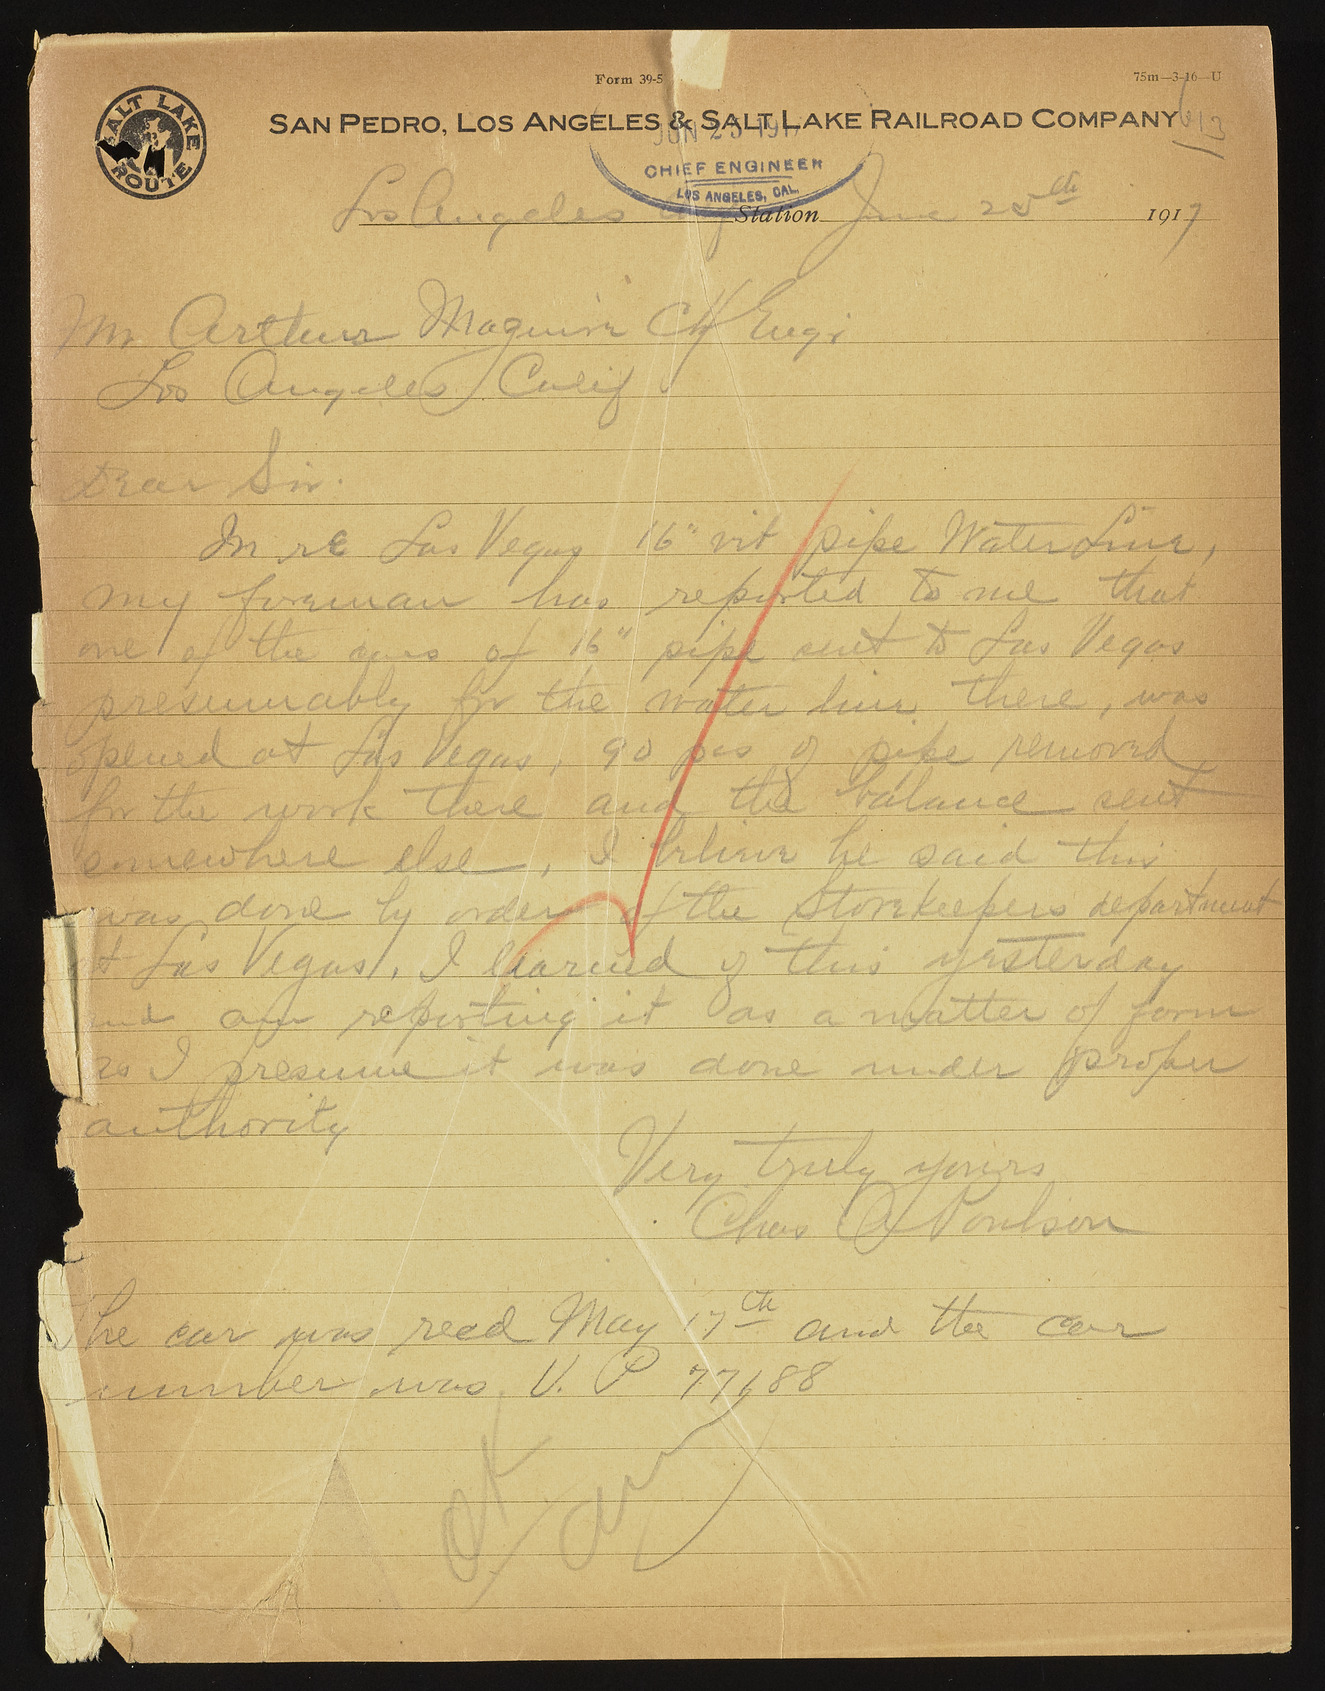 Form 39-5
75m—3-16—U
SALT LAKE ROUTE
SAN PEDRO, LOS ANGELES & SALT LAKE RAILROAD COMPANY
JUN 25 1917
CHIEF ENGINEER
LOS ANGELES, CAL.
Los Angeles Station June 25th 1917
Mr Arthur Maguire Chf Engr
Los Angeles, Calif
Dear Sir.
In re Las Vegas 16" vit pipe Water Line,
my foreman has reported to me that
one of the cars of 16" pipe sent to Las Vegas
presumably for the water line there, was
opened at Las Vegas, 90 pcs of pipe removed
for the work there and the balance sent
somewhere else, I believe he said this
was done by order of the Storekeepers department
at Las Vegas, I learned of this yesterday
and am reporting it as a matter of form
as I presume it was done under proper
authority
Very truly yours
Chas A Poulson
The car was recd May 17th and the car
number was U. P 77688
OK